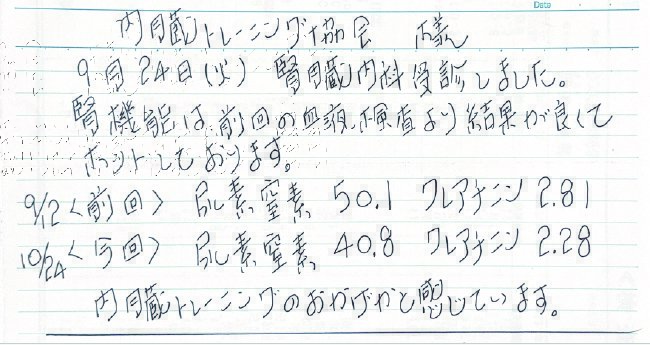 Date
内臓トレーニング協会 様
9月24日(火) 腎臓内科受診しました。
腎機能は前回の血液検査より結果が良くて
ホットしております。
9/12<前回> 尿素窒素 50.1 クレアチニン 2.81
10/24<今回> 尿素窒素 40.8 クレアチニン 2.28
内臓トレーニングのおかげかと感じています。